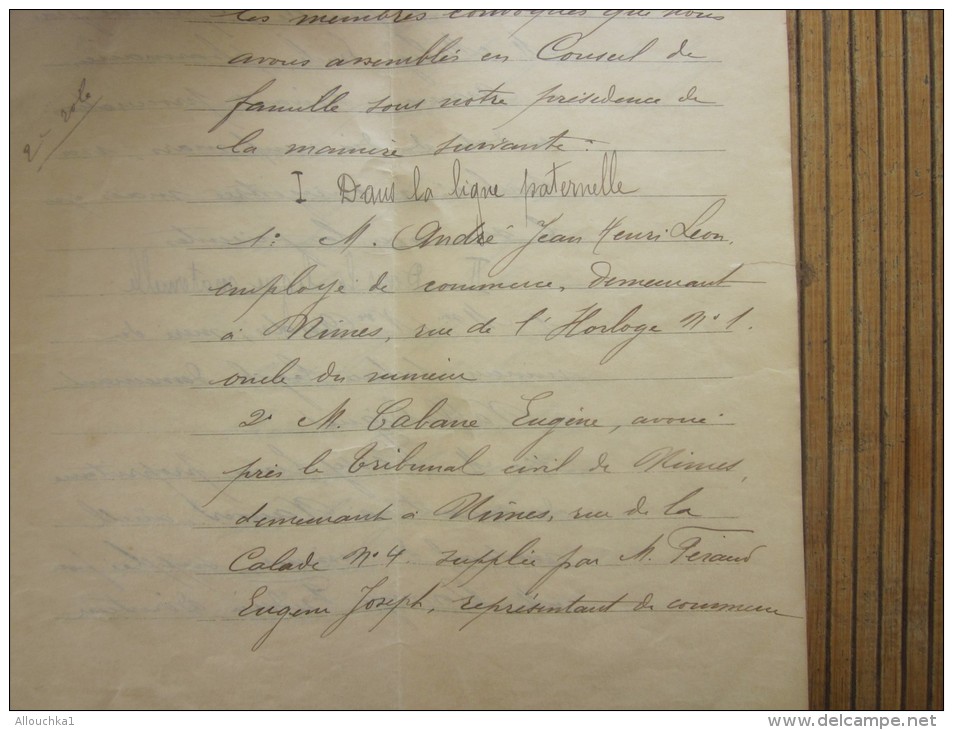 les membres convoqués que nous
avons assemblés en Conseil de
famille sous notre présidence de
la manière suivante :
2e rôle
I Dans la ligne paternelle
1° M. André Jean Henri Léon,
employé de commerce, demeurant
à Nimes, rue de l'Horloge N° 1.
oncle du mineur
2° M. Cabane Eugène, avoué
près le Tribunal civil de Nimes,
demeurant à Nimes, rue de la
Calade N° 4. supplée par M. Féraud
Eugène Joseph, représentant de commerce
Allouchka1
www.delcampe.net